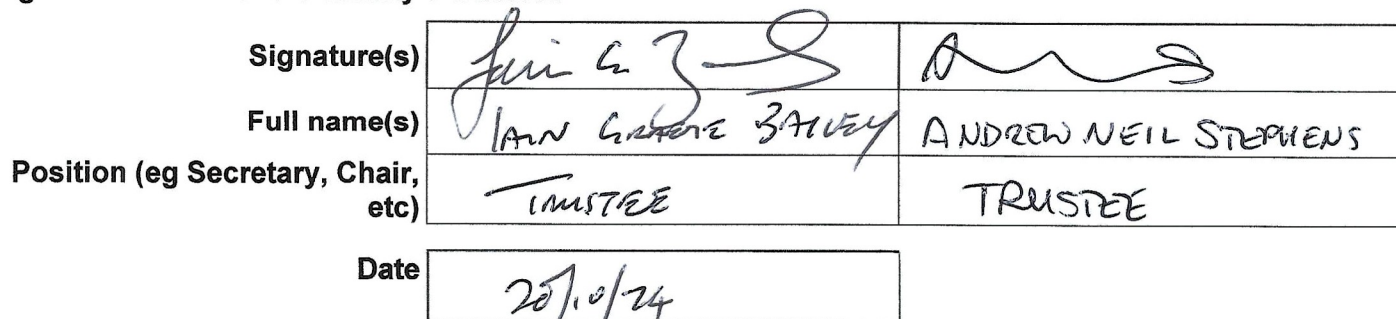 Signature(s)
Full name(s) IAIN GRAEME BAILEY ANDREW NEIL STEPHENS
Position (eg Secretary, Chair,
etc) TRUSTEE TRUSTEE
Date